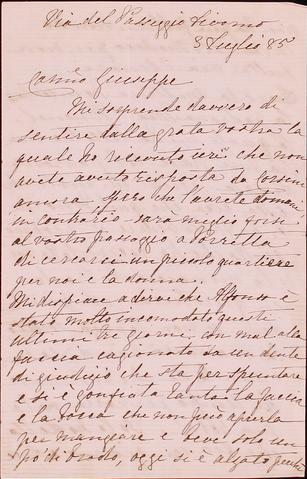 Via del Passeggio Livorno
3 Luglio 85
Carino Giuseppe
Mi sorprende davvero di
sentire dalla grata vostra la
quale ho ricevuto ieri che non
avete avuto risposta da Corsini
ancora. Spero che l'avrete domani
in contrario sarà meglio forse
al vostro passaggio a Porretta
di cercarci un piccolo quartiere
per noi e la donna.
Mi dispiace a dervi che Alfonso è
stato molto incomodato questi
ultimi tre giorni con mal alla
faccia cagionato da un dente
di giudizio che sta per spuntare
e si è gonfiata tanto la faccia
e la bocca che non può aprirla
per mangiare e beve solo un
po' di brodo, oggi si è alzato